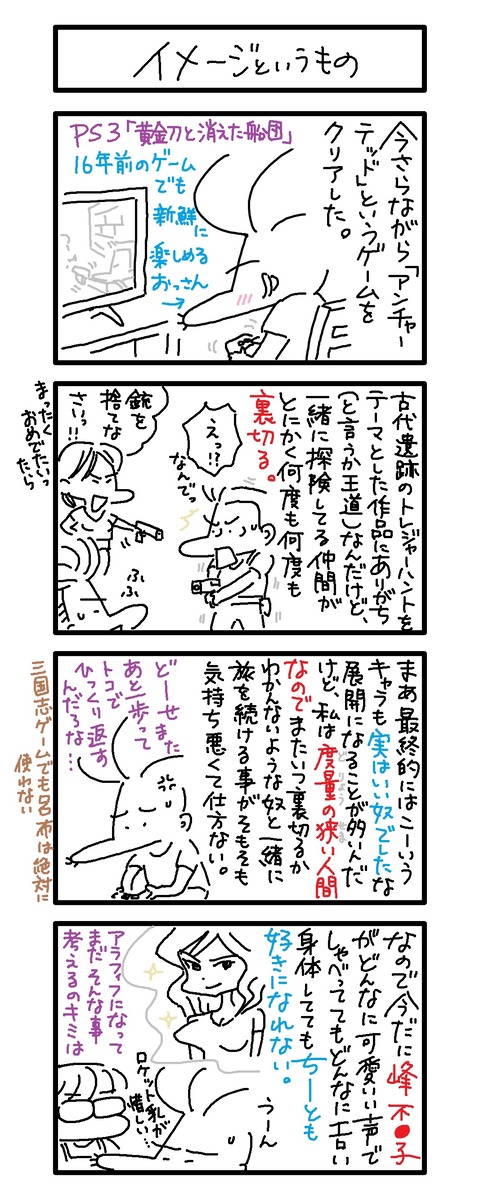 イメージというもの
今さらながら「アンチャー
テッド」というゲームを
クリアした。
PS3「黄金刀と消えた船団」
16年前のゲーム
でも
新鮮に
楽しめる
おっさん
→
古代遺跡のトレジャーハントを
テーマとした作品にありがち
(と言うか王道)なんだけど、
一緒に探険してる仲間が
とにかく何度も何度も
裏切る。
えっ!?
なんでっ
銃を
捨てな
さいっ!!
まったく
おめでたいっ
たら
ふふ
ふふ
まあ最終的にはこーいう
キャラも実はいい奴でしたな
展開になることが多いんだ
けど、私は度量の狭い人間
どりょう せま
なのでまたいつ裏切るか
わかんないような奴と一緒に
旅を続ける事がそもそも
気持ち悪くて仕方ない。
どーせまた
あと一歩って
トコで
ひっくり返す
んだろな…
三国志ゲームでも呂布は絶対に
使わない
なので今だに峰不●子
がどんなに可愛いい声で
しゃべっててもどんなにエロい
身体しててもちーとも
好きになれない。
うーん
アラフィフになって
まだそんな事
考えるのキミは
ロケット乳が
惜しい…